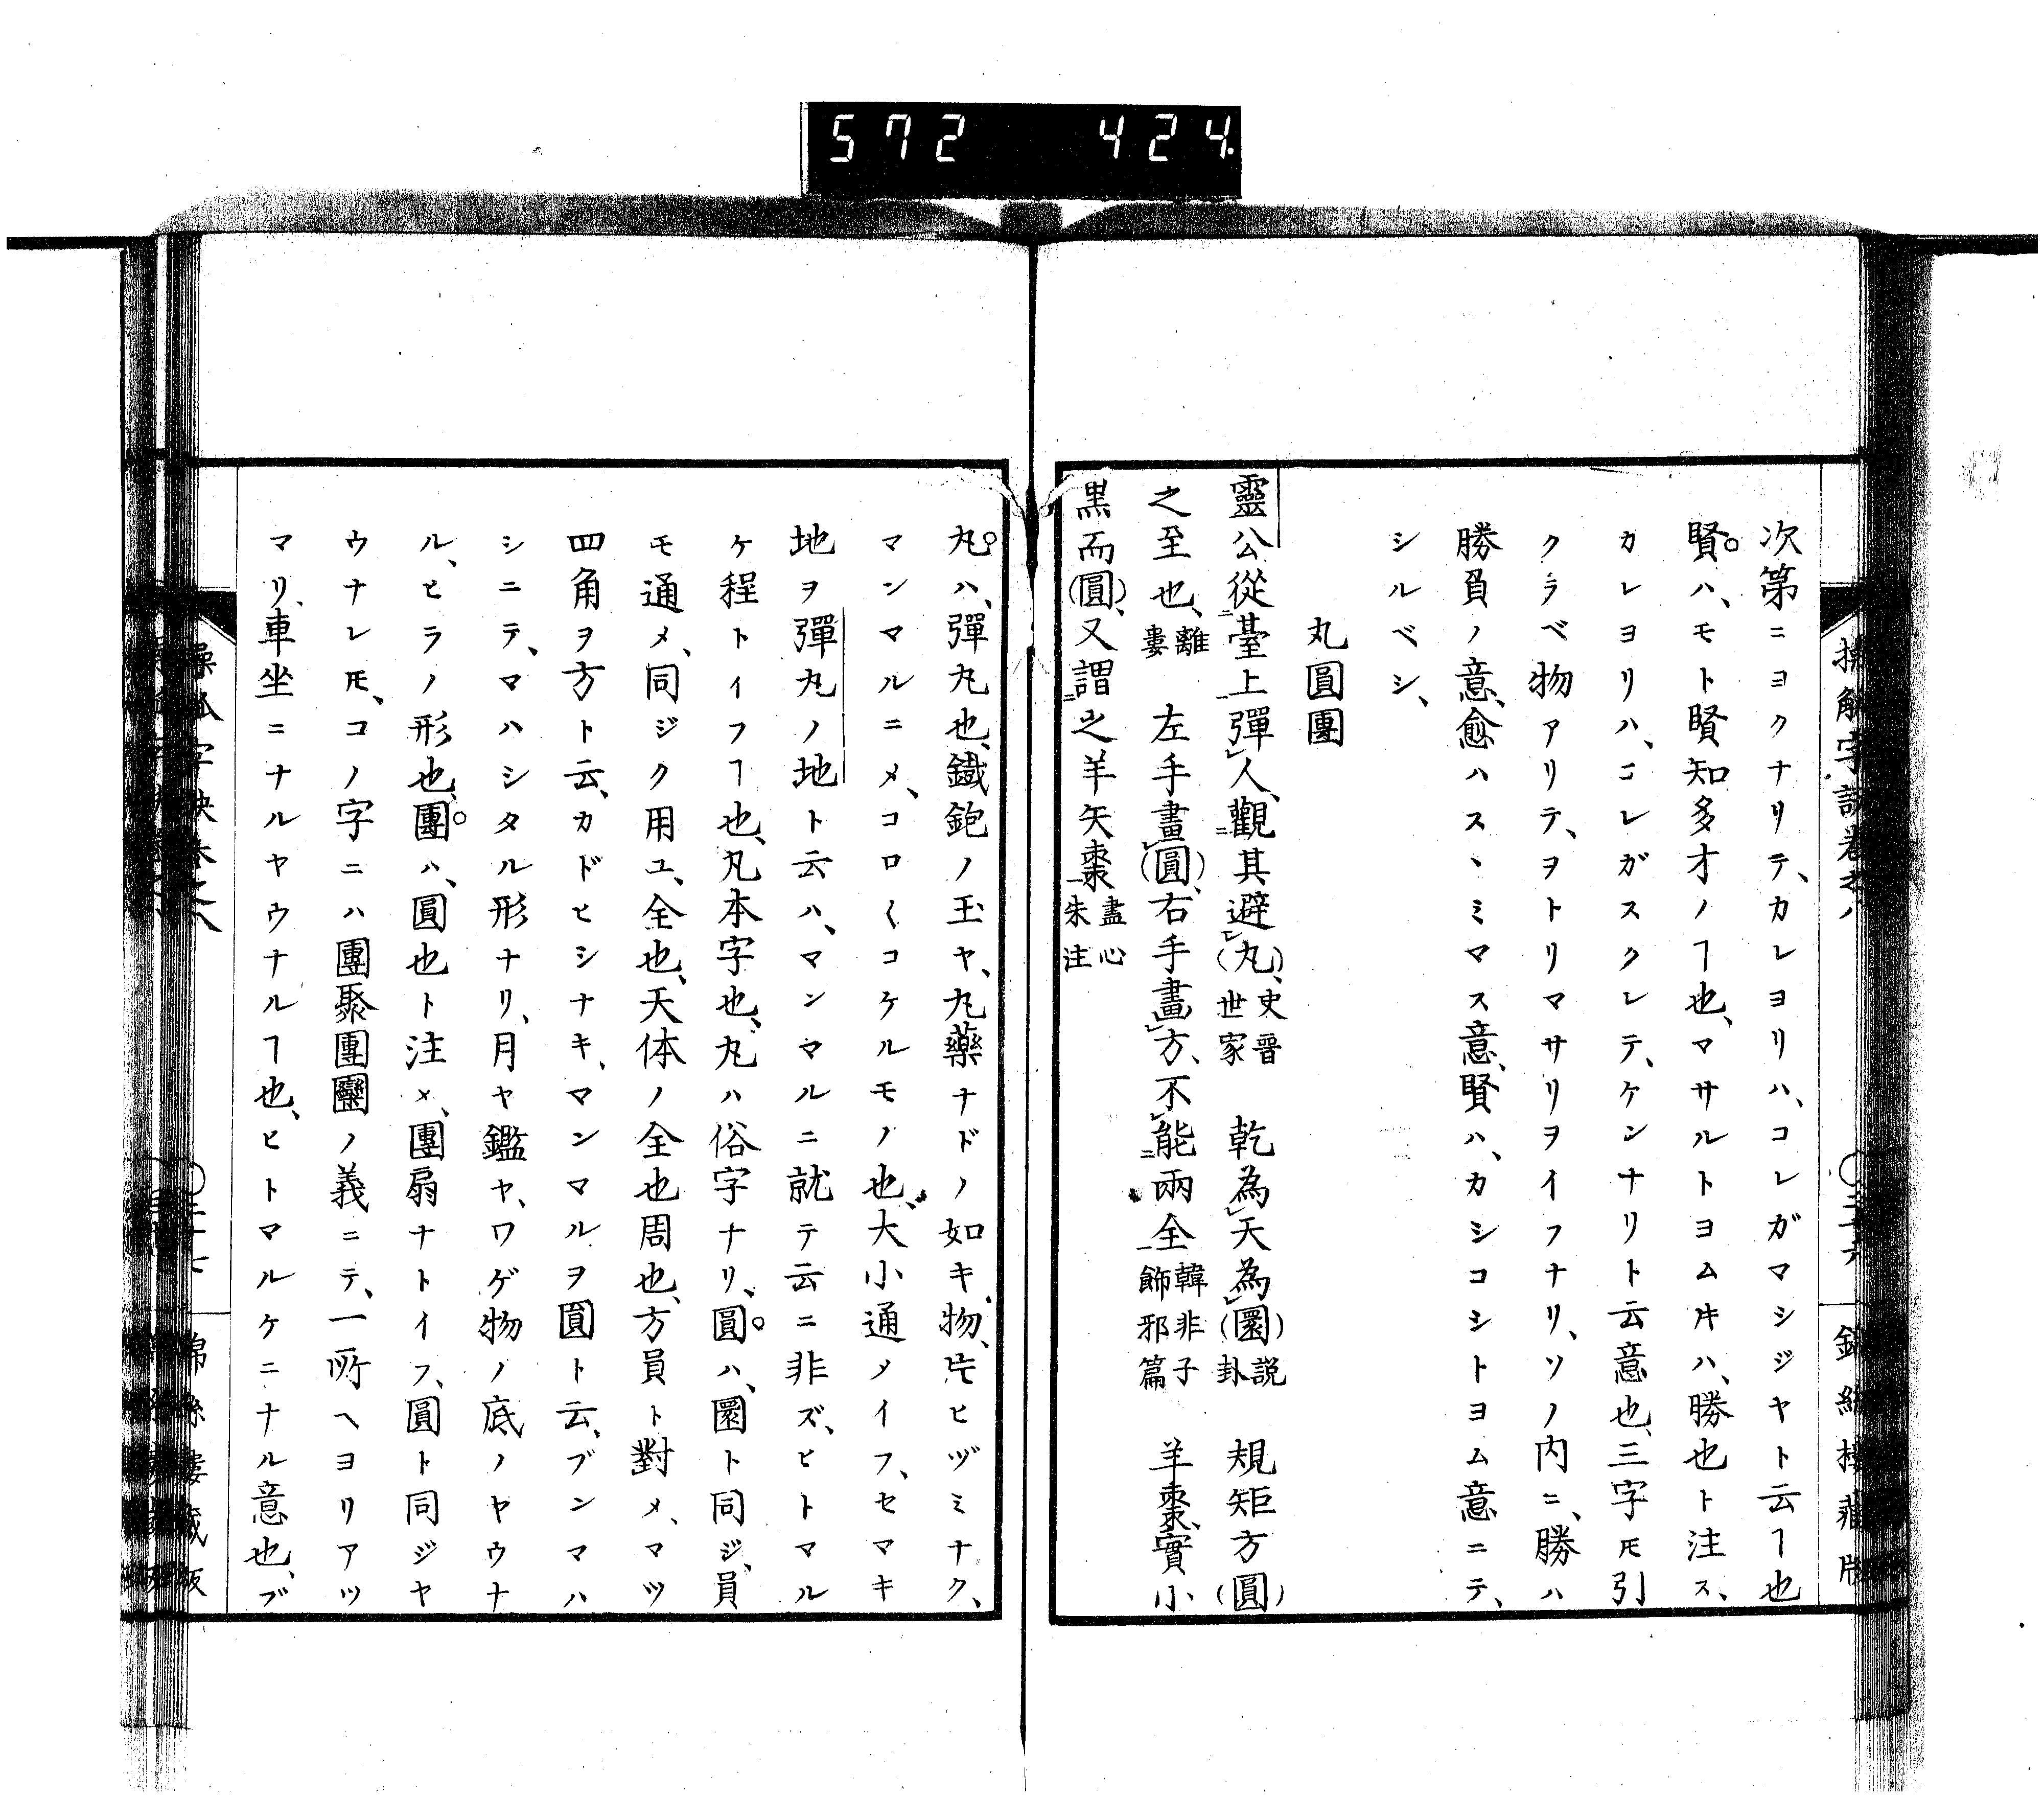 572 424
次第ニヨクナリテ、カレヨリハ、コレガマシジヤト云ヿ也
賢ハ、モト賢知多才ノヿ也、マサルトヨムㇳキハ、勝也ト注ス、
カレヨリハ、コレガスクレテ、ケンナリト云意也、三字𪜈引
クラベ物アリテ、ヲトリマサリヲイフナリ、ソノ内ニ、勝ハ
勝負ノ意、愈ハスヽミマス意、賢ハ、カシコシトヨム意ニテ、
シルベシ、
丸圓團
靈公從臺上彈人、觀其避(丸)、史晉世家 乾為天為(圜)説卦 規矩方(圓)
之至也、離婁 左手畫(圓)、右手畫方、不能兩全韓非子飾邪篇 羊棗、實小
黒而(圓)、又謂之羊矢棗盡心朱注
丸ハ、彈丸也、鐵鉋ノ玉ヤ、丸藥ナドノ如キ、物、𪜈ヒヅミナク、
マンマルニメ、コロ〱コケルモノ也、大小通メイフ、セマキ
地ヲ彈丸ノ地ト云ハ、マンマルニ就テ云ニ非ズ、ヒトマル
ケ程トイフヿ也、凡本字也、丸ハ俗字ナリ、圓ハ、圜ト同ジ、員
モ通メ、同ジク用ユ、全也、天体ノ全也周也、方員ト對メ、マツ
四角ヲ方ト云、カドヒシナキ、マンマルヲ圓ト云、ブンマハ
シニテ、マハシタル形ナリ、月ヤ鑑ヤ、ワゲ物ノ底ノヤウナ
ル、ヒラノ形也、團ハ、圓也ト注メ、團扇ナトイフ、圓ト同ジヤ
ウナレ𪜈、コノ字ニハ團聚團圞ノ義ニテ、一所ヘヨリアツ
マリ、車坐ニナルヤウナルヿ也、ヒトマルケニナル意也、ブ
操觚字訣卷之八